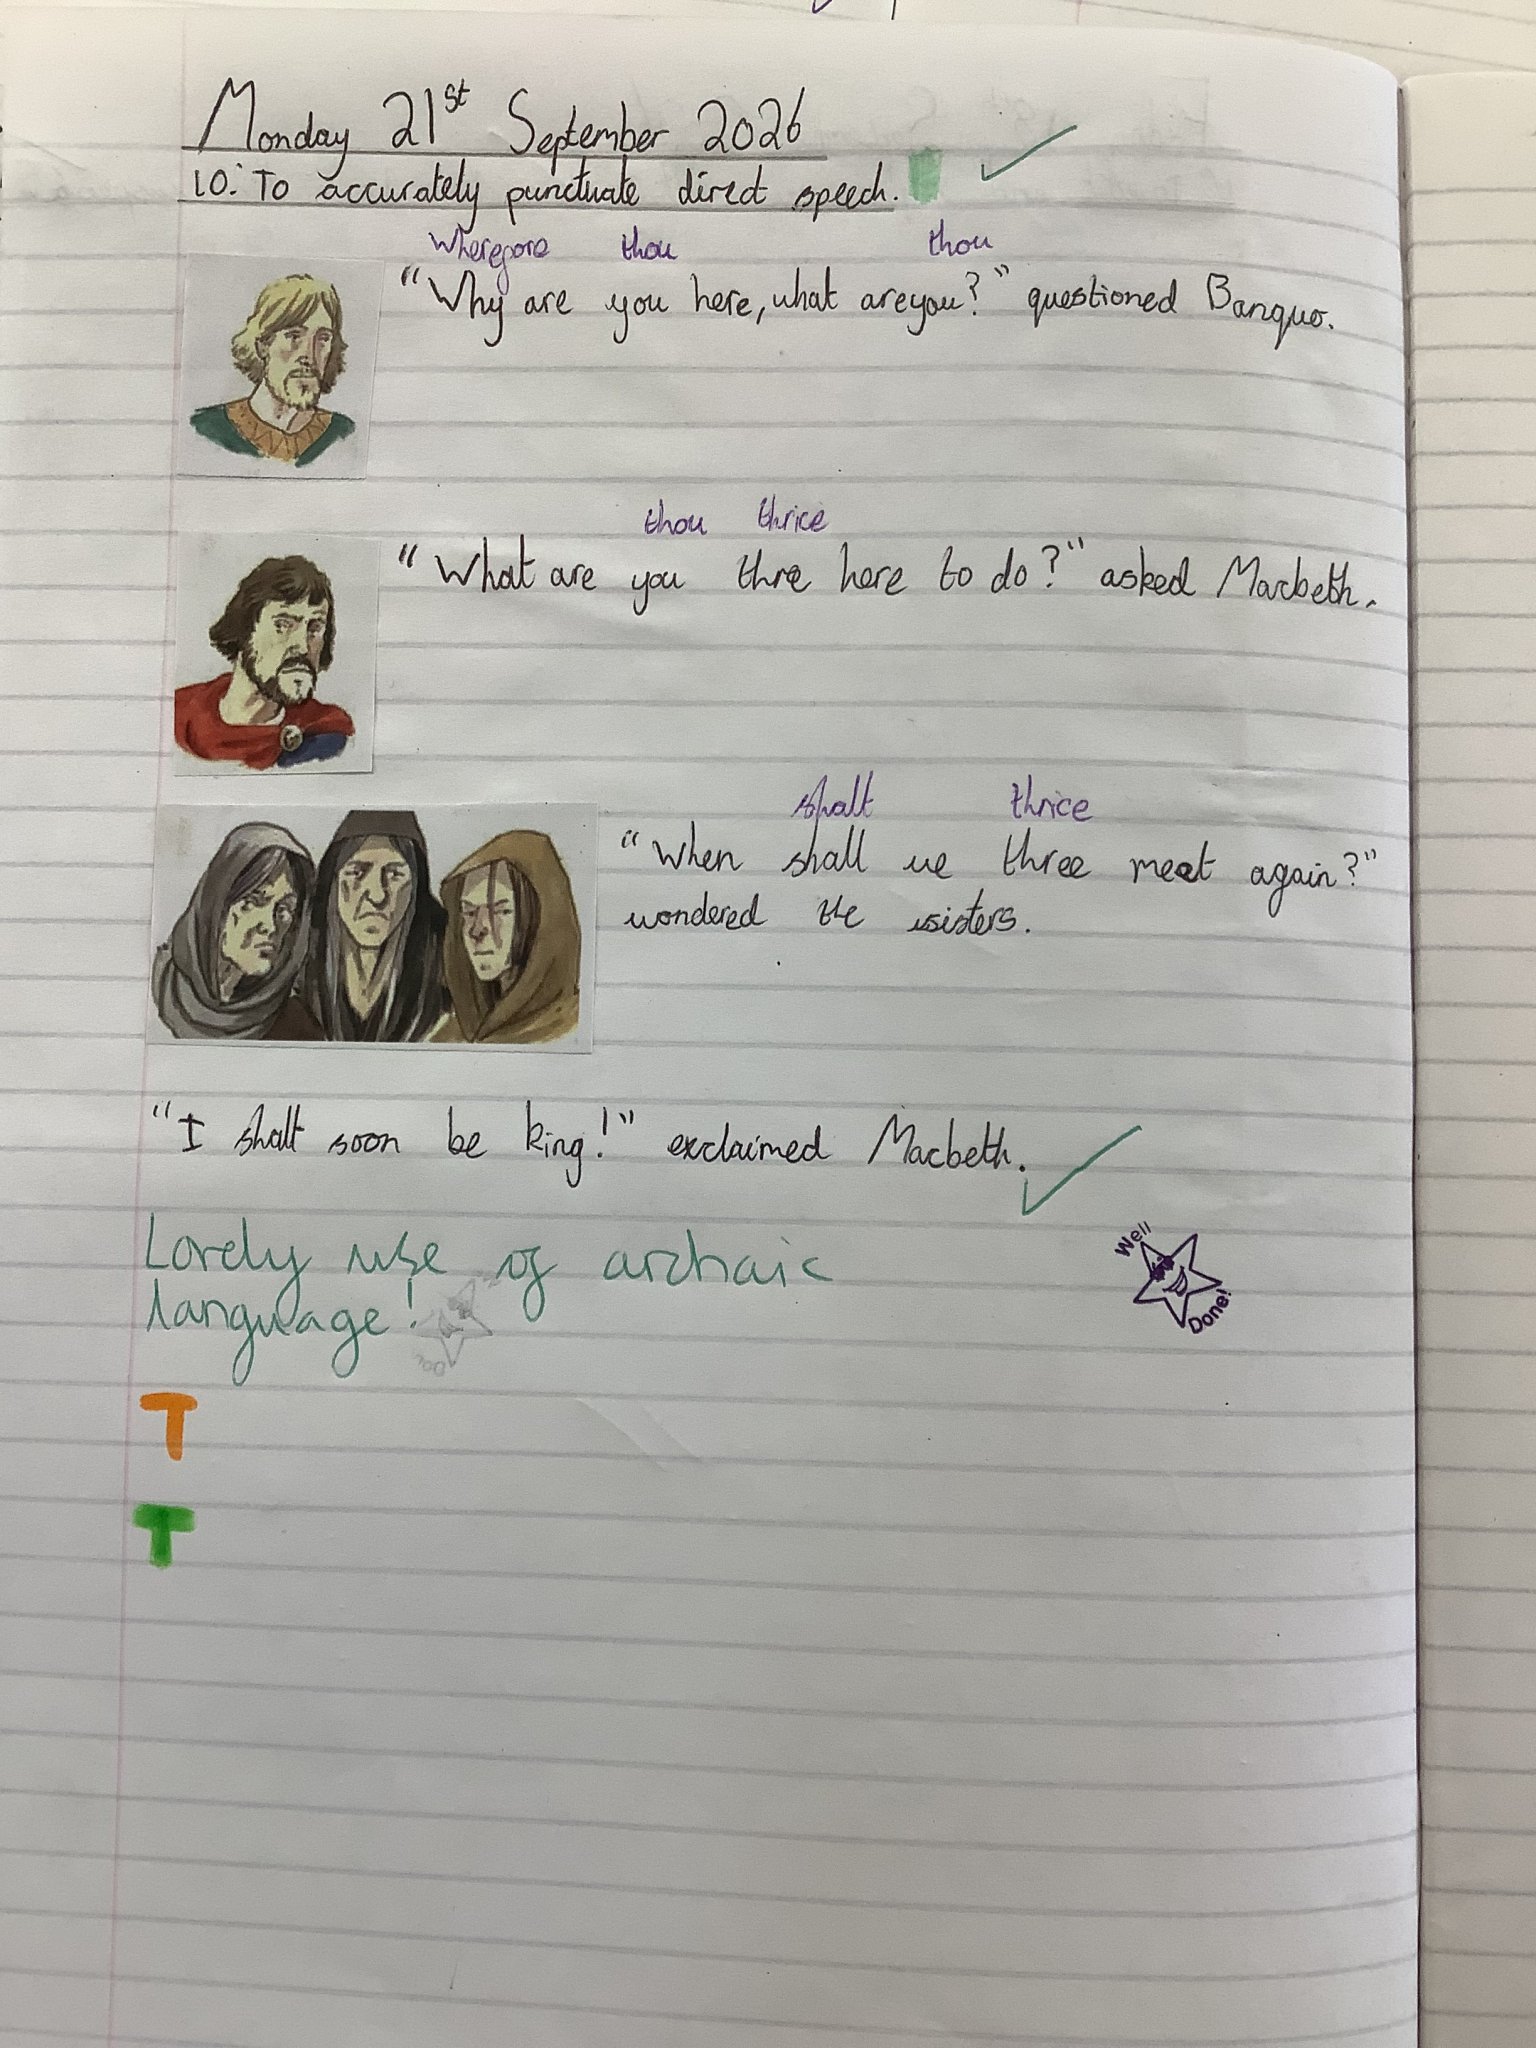 Monday 21st September 2026
LO: To accurately punctuate direct speech.
Wherefore thou thou
"Why are you here, what are you?" questioned Banquo.
thou thrice
"What are you thre here to do?" asked Macbeth.
shalt thrice
"When shall we three meet again?"
wondered the sisters.
"I shalt soon be king!" exclaimed Macbeth.
Lovely use of archaic
language!
Well
Done!
T
T